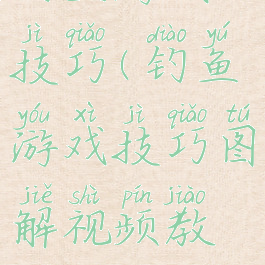 jì qiǎo diào yú
技巧(钓鱼
yóu xì jì qiǎo tú
游戏技巧图
jiě shì pín jiào
解视频教